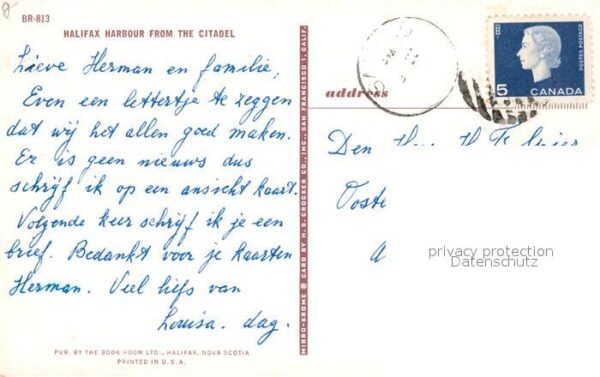 8
BR-813
HALIFAX HARBOUR FROM THE CITADEL
Lieve Herman en familie,
Even een lettertje te zeggen
dat wij het allen goed maken.
Er is geen nieuws dus
schrijf ik op een ansicht kaart.
Volgende keer schrijf ik je een
brief. Bedankt voor je kaarten
Herman. Veel liefs van
Louisa. dag.
PUB. BY THE BOOK ROOM LTD., HALIFAX, NOVA SCOTIA
PRINTED IN U.S.A.
MIRRO-KROME ® CARD BY H. S. CROCKER CO., INC., SAN FRANCISCO 1, CALIF.
address
5
CANADA
POSTES POSTAGE
Den
Ooste
privacy protection
Datenschutz